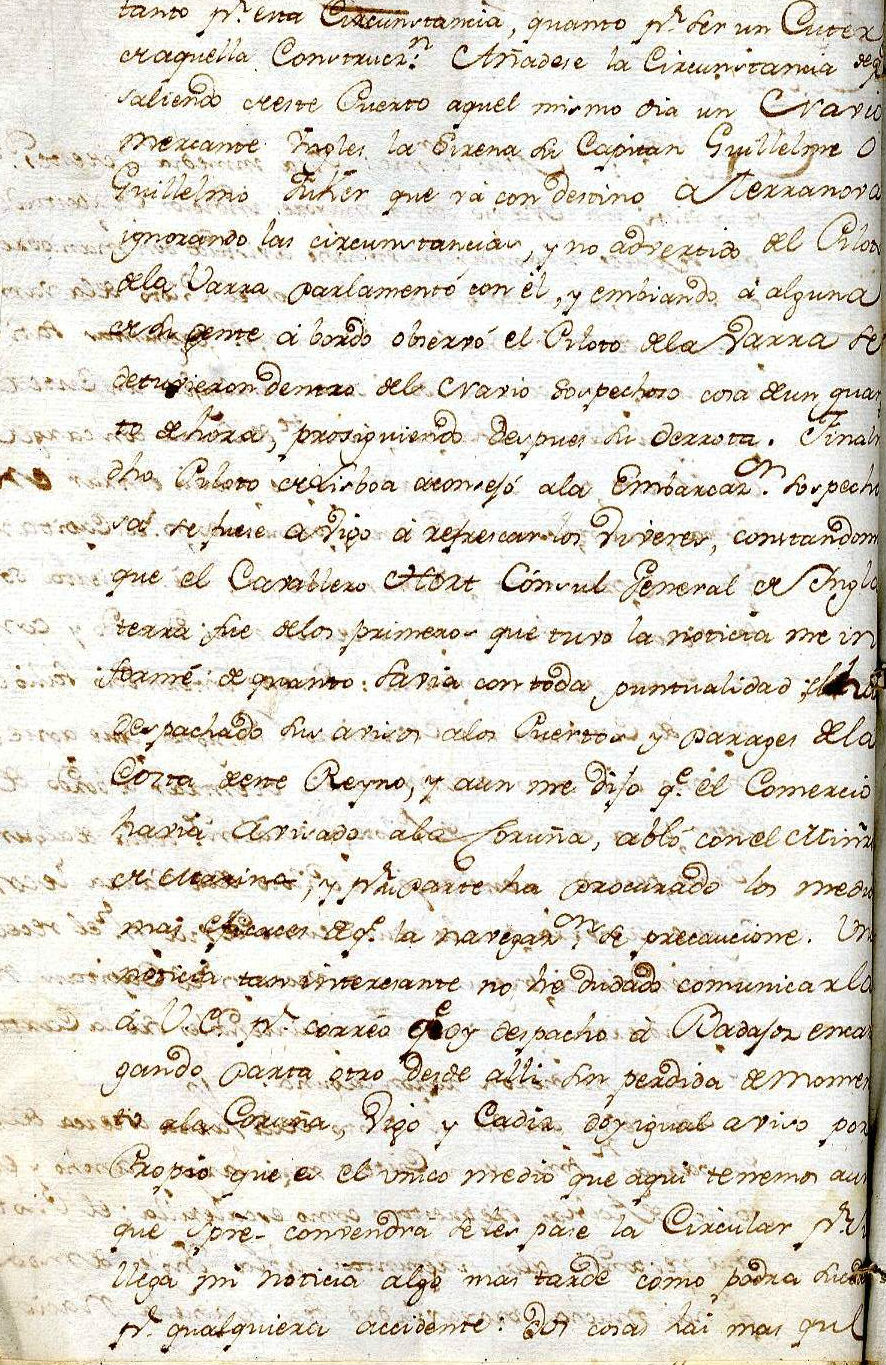 tanto pr. esta Circunstancia, quanto pr. ser un Cuter
de aquella Construczn. Añadese la Circunstancia de q
saliendo de este Puerto aquel mismo dia un Navio
mercante Yngles la Sirena su Capitan Guillelme O
Guillelmo Fisher que vá con destino á Terranova
ignorando las circunstancias, y no advertido del Piloto
dela Varra parlamentó con él, y embiando á alguna
de su gente á bordo observó el Piloto dela Varra se
detuvieron dentro del Navio sospechoso cosa de un quar
to de hora, prosiguiendo despues su derrota. Finalm
dho Piloto de Lisboa aconsejó ala Embarcazon. sospecho
sa se fuese a Vigo á refrescar los Viveres, constandome
que el Cavallero Hort Cónsul General de Ingla
terra fue delos primeros que tuvo la noticia me in
formé de quanto savia con toda puntualidad
despachado sus avisos alos Puertos y parages dela
Costa de este Reyno, y aun me dijo qe. el Comercio
havia Avisado ala Coruña, abló con el Minro
de Marina, y pr. su parte ha procurado los medios
mas eficaces de qe. la navegazon. se precaucione. Una
noticia tan interesante no he dudado comunicarla
á V.E. pr. correo qe oy despacho á Badajoz encar
gando parta otro desde alli sin perdida de momen
to ala Coruña, Vigo y Cadiz doy igual aviso por
Propio que es el unico medio que aqui tenemos aun
que spre. convendrá se les pase la Circular pr. si
llega mi noticia algo mas tarde como podra suceder
pr. qualquiera accidente: Dos cosas hai mas que